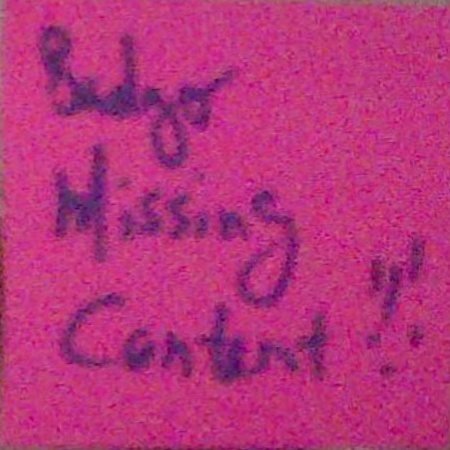 Badger
Missing
Content !!!